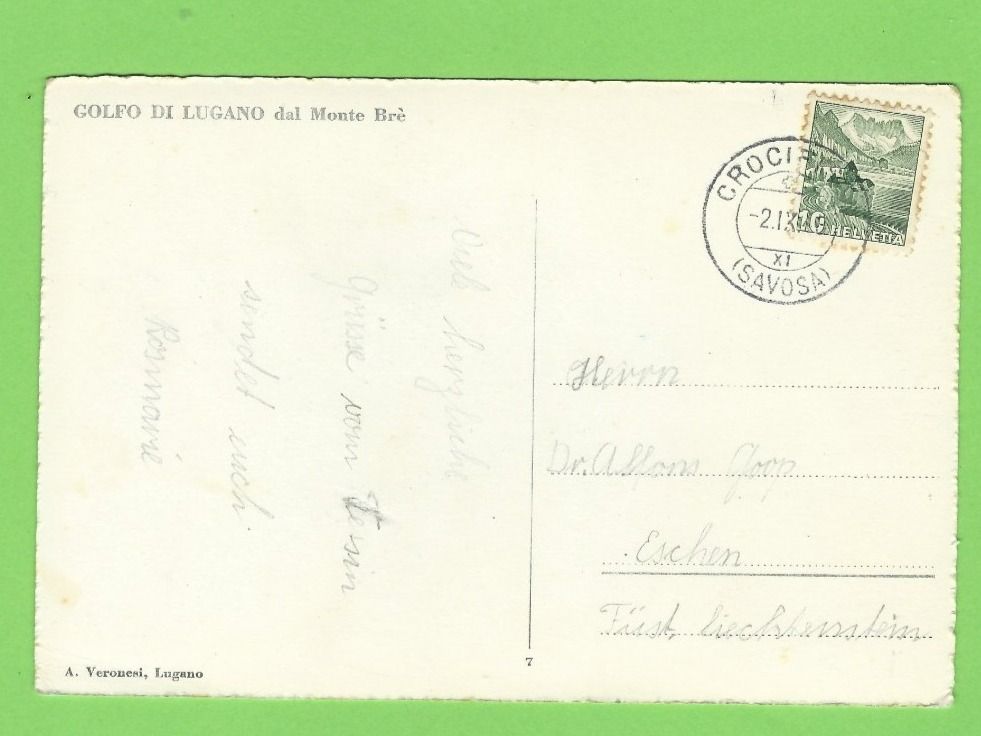 GOLFO DI LUGANO dal Monte Brè
CROCI
-2.IX
XI
(SAVOSA)
10 HELVETIA
Viel herzliche
Grüsse vom Tessin
sendet euch
Rosmarie
Herrn
Dr. Alfons Goop
Eschen
Füst. Liechtenstein
A. Veronesi, Lugano
7